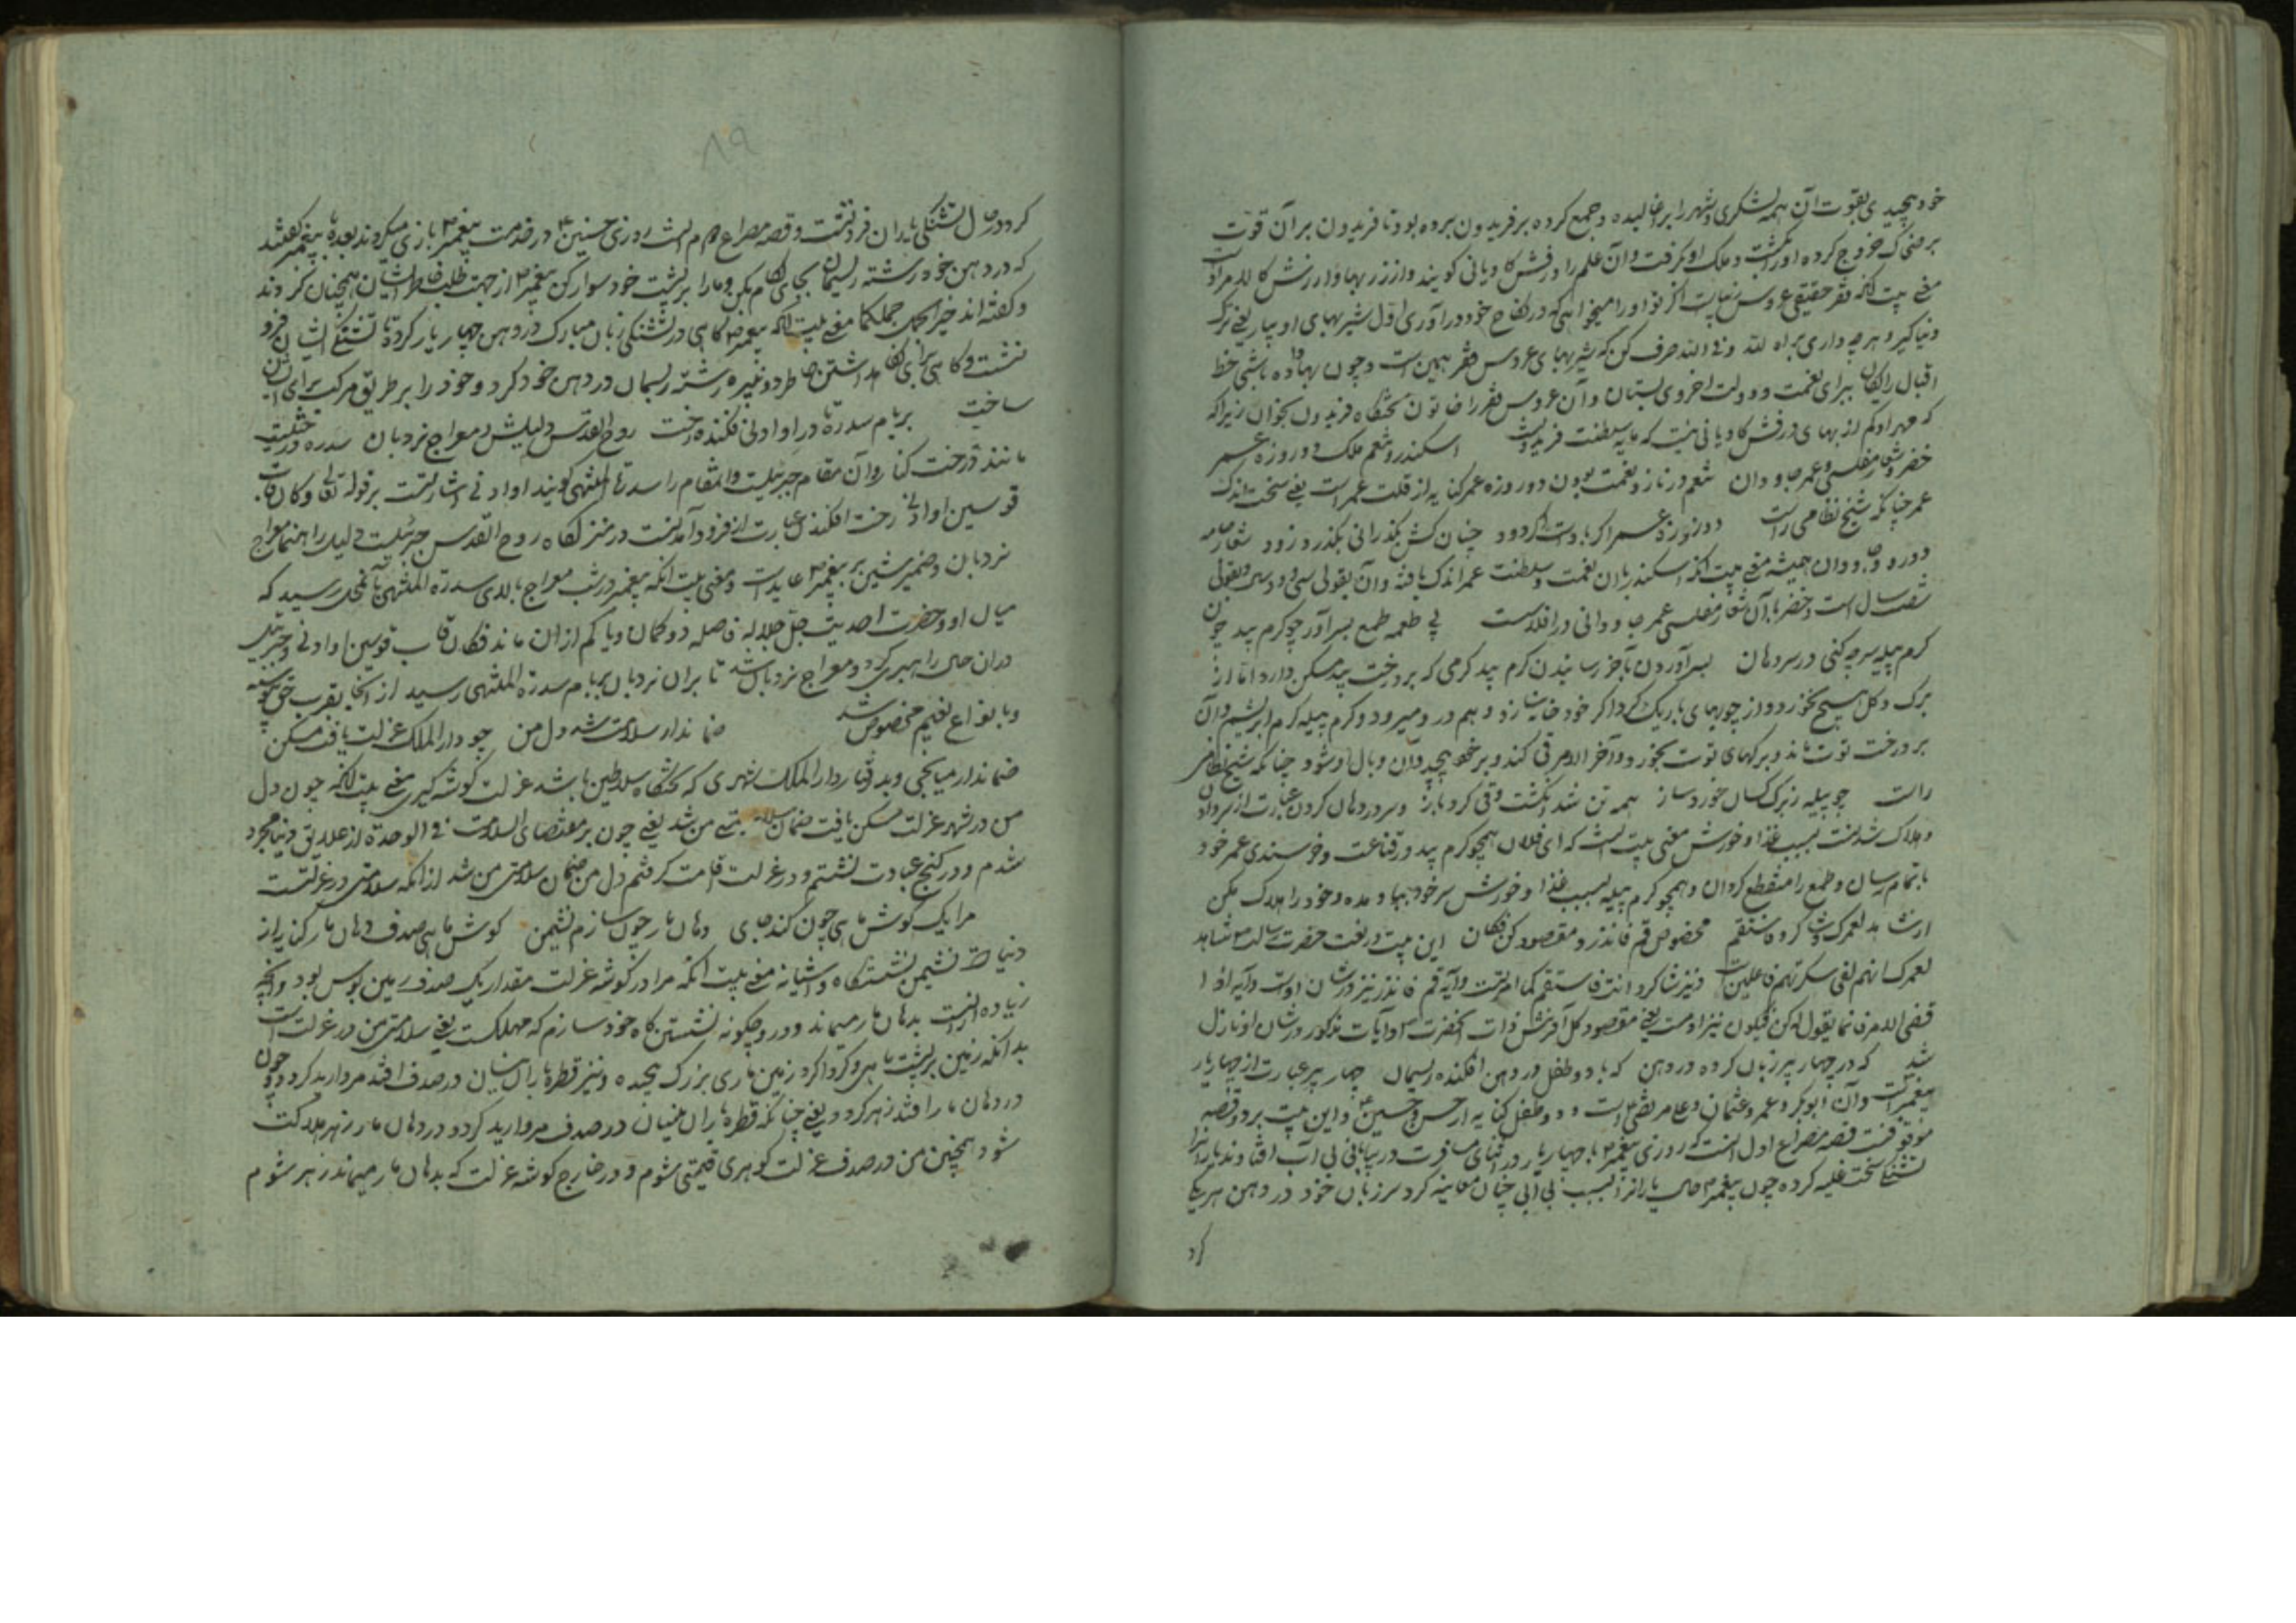 خود پیچیدی بقوت آن همه لشکری و شهر را برغالیده و جمع کرده بر فریدون برده بود تا فریدون بر آن قوت
بر ضحاک خروج کرده او را کشت و ملک او گرفت و آن علم را درفش کاویانی گویند و از زر بها و ارزش کالا مراد
معنی بیت آنکه فقر حقیقی عروس زیباست اگر تو او را میخواهی که در نکاح خود در آوری اول شیربهای او بیار یعنی ترک
دنیا گیر و هرچه داری براه لله و فی الله صرف کن که شیربهای عروس فقر همین است و چون بها داده باشی خط
اقبال رایگان برای نعمت و دولت اخروی بستان و آن عروس فقر را خاتون تختگاه فریدون بخوان زیرا که
مهر او کم از بهای درفش کاویانی نیست که مایه سلطنت فریدونست اسکندر و تنعم ملک دو روزه عمر
خضر و شعار مفلسی و عمر جاودان تنعم در ناز و نعمت بودن دو روزه عمر کنایه از قلت عمر است یعنی سخت اندک
عمر چنانکه شیخ نظامی راست دو روزه عمر اگر داد است اگر دود چنان کش بگذرانی بگذرد زود شعار جامه
دوره و جاودان همیشه معنی بیت آنکه اسکندر با آن نعمت و سلطنت عمر اندک یافته و آن بقولی سی و دو سال و بقولی
شصت سال است و خضر با آن شعار مفلسی عمر جاودانی دریافته است پی طعمه طمع بسر آور چو کرم پید چون
کرم پیله سر چه کنی در سر دهان بسر آوردن بآخر رسانیدن کرم پید کرمی که بر درخت بید مسکن دارد اما از
برگ و گل هیچ نخورد و از چوبهای باریک گرداگرد خود خانه سازد و هم در و میرود و کرم پیله کرم ابریشم و آن
بر درخت توت ماند و برگهای توت بخورد و آخر الامر قی کند و بر خود پیچد و آن وبال او شود چنانکه شیخ نظامی
راست چو پیله ز برگ کسان خورد ساز همه تن شد انگشت و قی کرد باز و سر در دهان کردن عبارت از سر دادن
و هلاک شدنست بسبب غذا و خورش معنی بیت اینست که ای فلان همچو کرم پید در قناعت و خورسندی عمر خود
باتمام رسان و طمع را منقطع گردان و همچو کرم پیله بسبب غذا و خورش سر خود بباد مده و خود را هلاک مکن
ارشاد لعمرک و شاگرد فاستقم مخصوص قم فانذر و مقصود کن فکان این بیت در نعت حضرت رسالت شاهد
لعمرک انهم لفی سکرتهم یعمهون است و نیز شاگرد است فاستقم کما امرت و آیه قم فانذر نیز در شان اوست و آیه اذا
قضی الامر فانما یقول له کن فیکون نیز اوست یعنی مقصود کل آفرینش ذات آنحضرت و آیات مذکور در شان او نازل
شد که در چهار پیر زبان کرده در دهن که با دو طفل در دهن افکنده ریسمان چهار پیر عبارت از چهار یار
پیغمبر است و آن ابوبکر و عمر و عثمان و علی مرتضی است و دو طفل کنایه از حسن و حسین و این بیت بر دو قصه
موقوفست قصه مصراع اول آنست که روزی پیغمبر با چهار یار در اثنای مسافرت در بیابانی بی آب افتادند یارانرا
تشنگی سخت غلبه کرده چون پیغمبر حال یارانرا بسبب بی آبی چنان معاینه کرد سر زبان خود در دهن هر یک
کرد
۸۹
کرد در حال تشنگی یاران فرو نشست و قصه مصراع دوم آنست روزی حسنین در خدمت پیغمبر بازی میکردند بعده با پیغمبر گفتند
که در دهن خود رشته ریسمان بجای لگام بکن و ما را بر پشت خود سوار کن پیغمبر از جهت طلب خاطر ایشان همچنان کردند
و گفته اند خیر الجمل جملکما معنی بیت آنکه پیغمبر گاهی در تشنگی زبان مبارک در دهن چهار یار کرد تا تشنگی ایشان فرو
نشست و گاهی برای نگاه داشتن خاطر دو نبیره رشته ریسمان در دهن خود کرد و خود را بر طریق مرکب برای ایشان
ساخت بر بام سدره تا در او ادنی فکنده رخت روح القدس دلیلش و معراج نردبان سدره درختیست
مانند درخت کنار و آن مقام جبرئیلست و آنمقام را سدرة المنتهی گویند او ادنی اشارتست بر قوله تعالی و کان قاب
قوسین او ادنی رخت افکندن عبارت از فرود آمدنست در منزلگاه روح القدس جبرئیلست دلیل راهنما معراج
نردبان و ضمیر شین بر پیغمبر عایدست و معنی بیت آنکه پیغمبر در شب معراج بالای سدرة المنتهی تا آنمحل رسید که
میان او و حضرت احدیت جل جلاله فاصله دو کمان و یا کم از آن ماند فکان قاب قوسین او ادنی و جبرئیل
در آن حال راهبری کرد و معراج نردبان شد تا بر آن نردبان بر بام سدرة المنتهی رسید از آنجا بقرب حق پیوسته
و بانواع نعیم مخصوص شد ضماندار سلامت شد دل من چو دار الملک عزلت یافت مسکن
ضماندار میانجی و بدرفتار دار الملک شهری که تختگاه سلاطین باشد عزلت گوشه گیری معنی بیت آنکه چون دل
من در شهر عزلت مسکن یافت ضمان سلامتی من شد یعنی چون بر مقتضای السلامت فی الوحدة از علایق دنیا مجرد
شدم و در کنج عبادت نشستم و در عزلت اقامت گرفتم دل من ضمان سلامتی من شد از آنکه سلامتی در عزلتست
مرا یک گوش ماهی چون کند جای دهان مار چون سازم نشیمن گوش ماهی صدف دهان مار کنایه از
دنیا است نشیمن نشستگاه و آشیانه معنی بیت آنکه مرا در گوشه عزلت مقدار یک صدف زمین بس بود و آنچه
زیاده از آنست بدهان مار میماند و در و چگونه نشستنگاه خود سازم که مهلکست یعنی سلامتی من در عزلت است
بدانکه زمین بر پشت ماهی و گرداگرد زمین ماری بزرگ پیچیده و نیز قطره باران نیسان در صدف افتد مروارید گردد و چون
در دهان مار افتد زهر گردد یعنی چنانکه قطره باران نیسان در صدف مروارید گردد و در دهان مار زهر هلاکت
شود همچنین من در صدف عزلت گوهری قیمتی شوم و در خارج گوشه عزلت که بدهان مار میماند زهر شوم